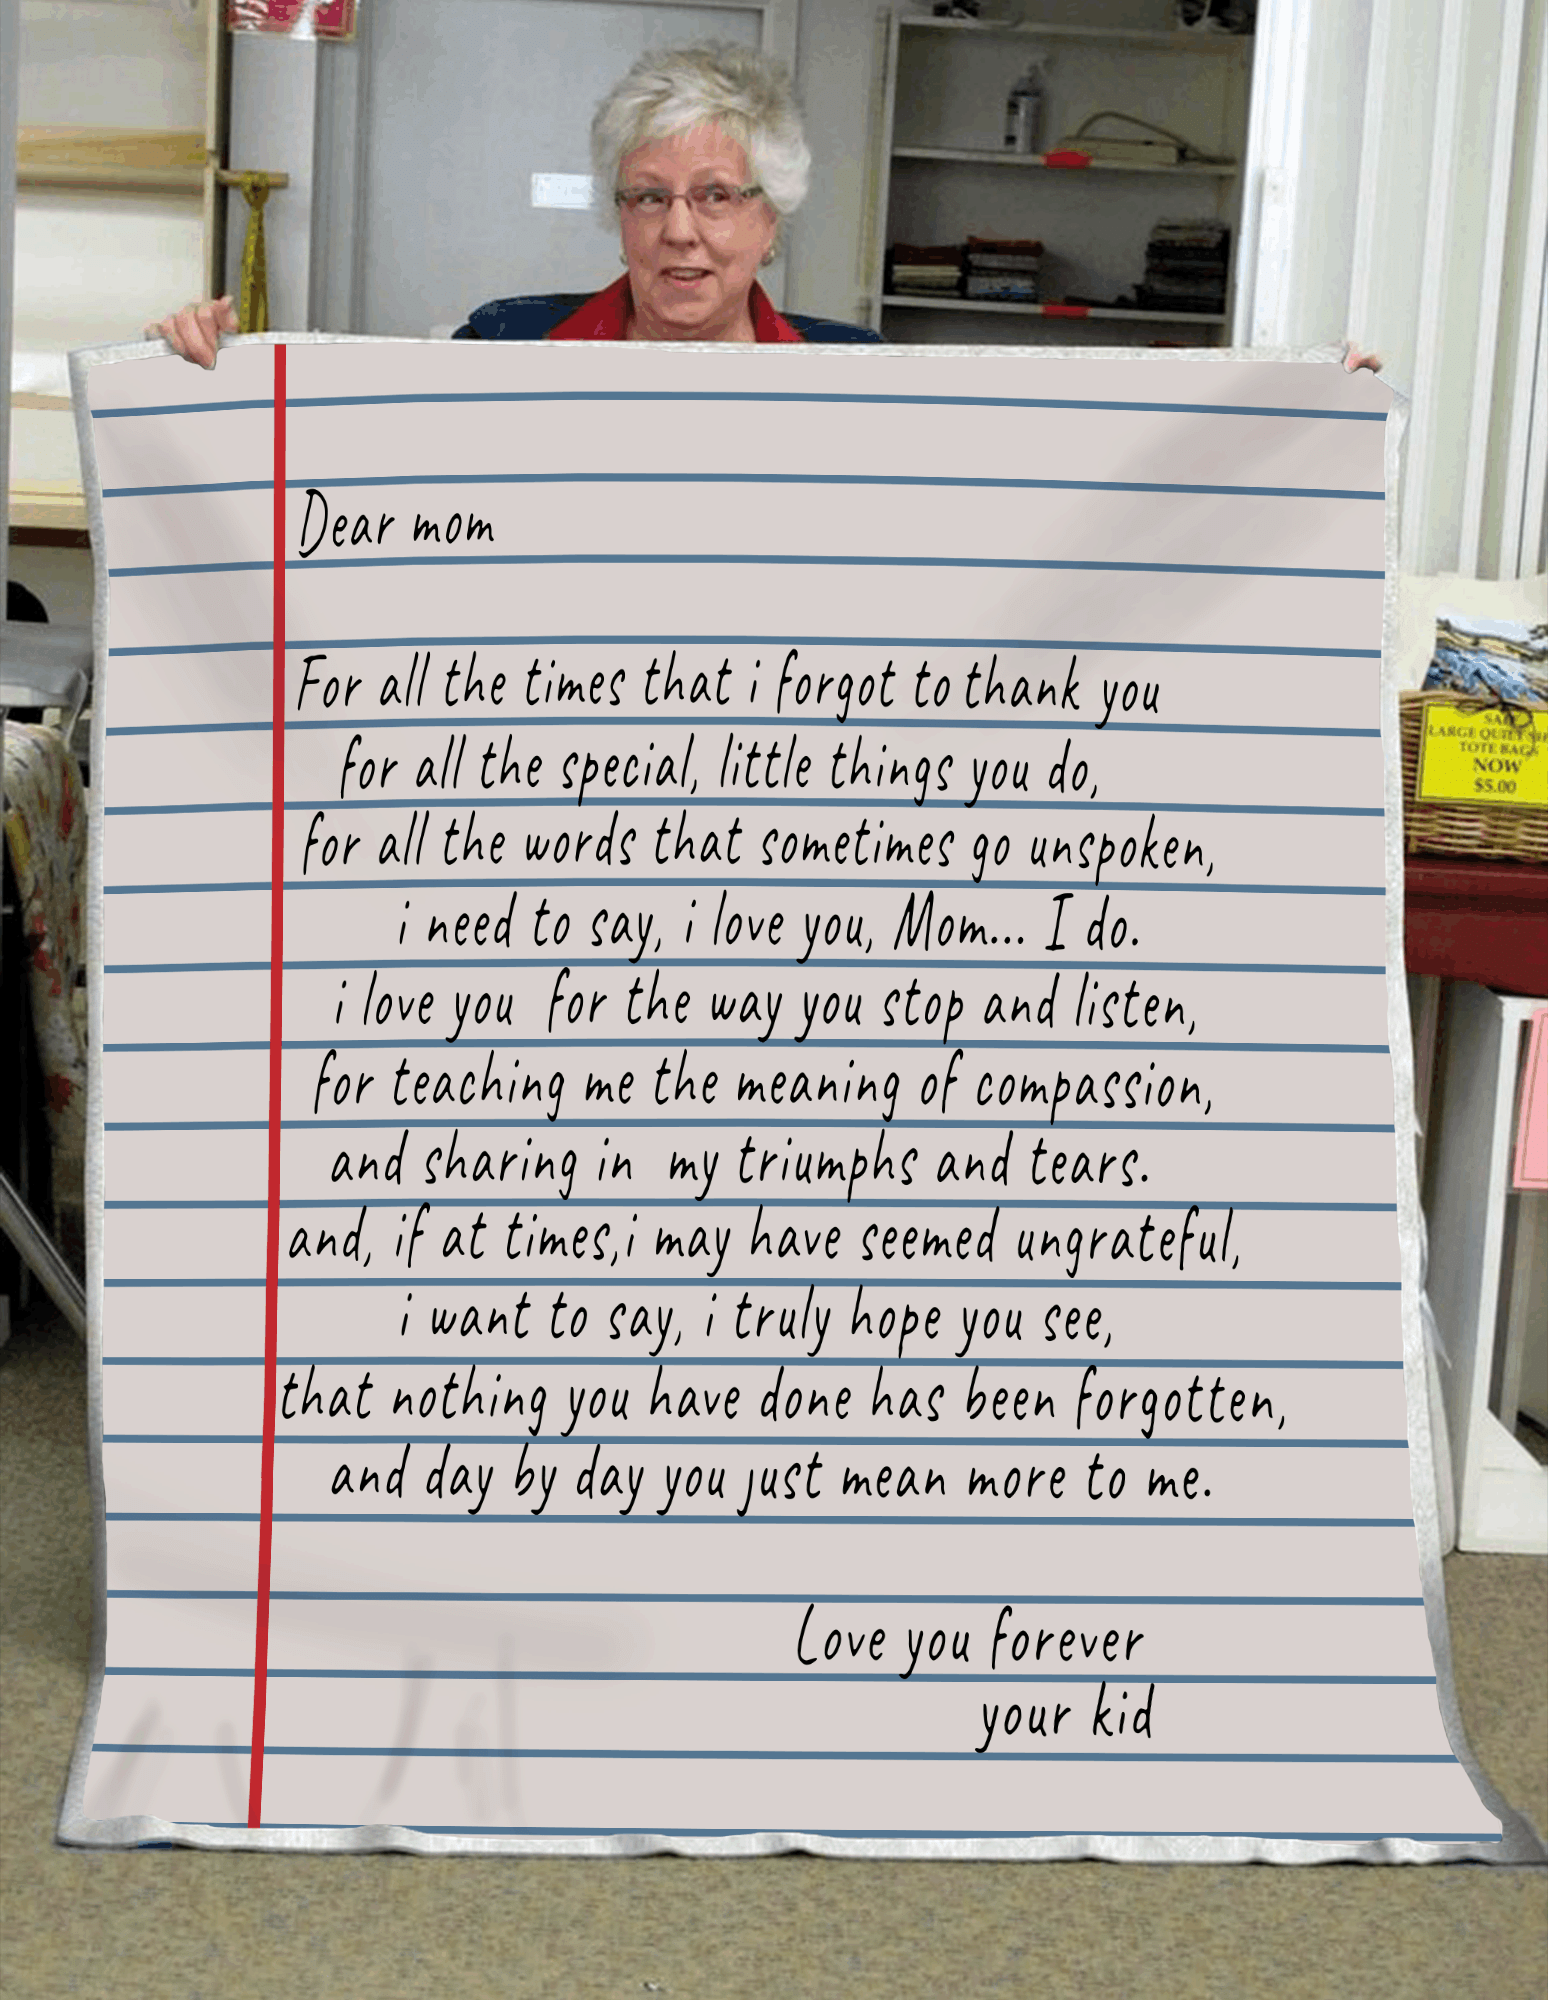 Dear mom
For all the times that i forgot to thank you
for all the special, little things you do,
for all the words that sometimes go unspoken,
i need to say, i love you, Mom... I do.
i love you for the way you stop and listen,
for teaching me the meaning of compassion,
and sharing in my triumphs and tears.
and, if at times,i may have seemed ungrateful,
i want to say, i truly hope you see,
that nothing you have done has been forgotten,
and day by day you just mean more to me.
Love you forever
your kid
SALE
LARGE QUILT
TOTE BAGS
NOW
$5.00